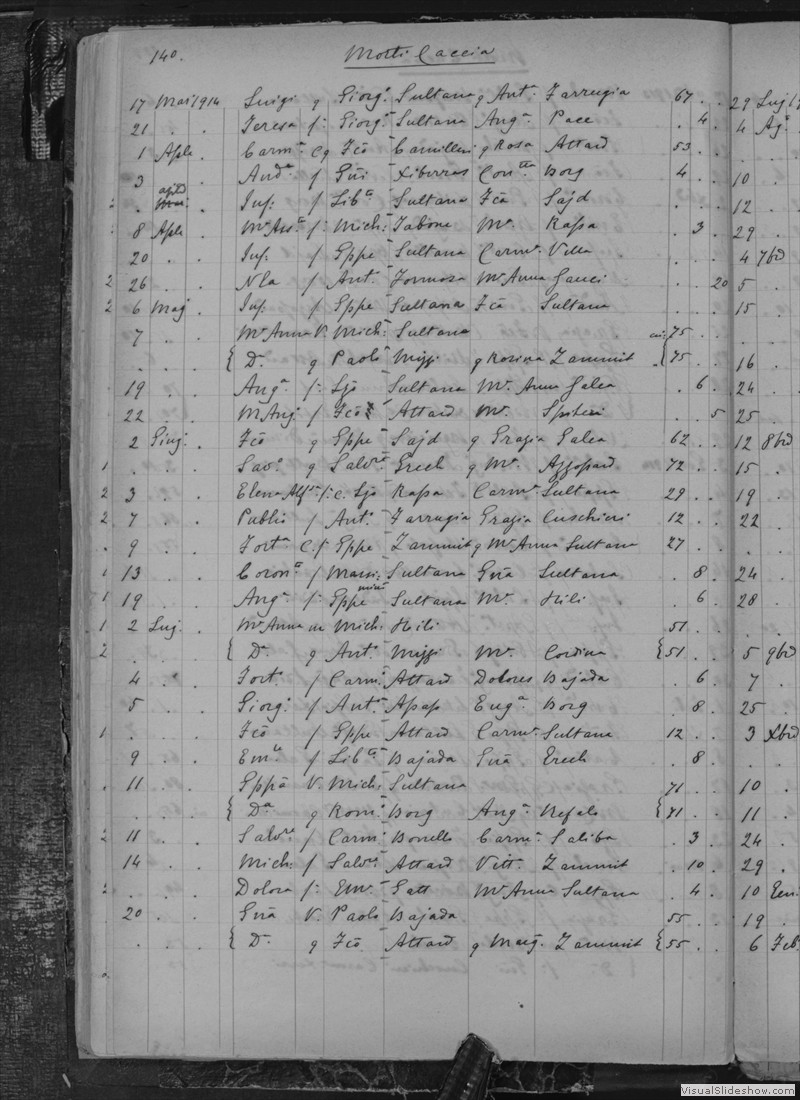 140. Morti Caccia
17 Mar: 1914 Luigi q Giorg.o Sultana q Ant.a Farrugia 67 . . 29 Lug
21 . . Teresa f: Giorg.o Sultana Ang.a Pace . 4 . 4 Ag
1 Aple . Carm.o Cq Fco Camilleri q Rosa Attard 53 . .
3 And.a f Gūi Xiberras Con.tta Borg 4 . . 10 .
2 . aple . Inf: f Lib.o Sultana Fca Sajd . . . 12 .
8 Aple . Ma f: Mich: Tabone Ma. Rapa . 3 . 29 .
20 . . Inf. f Gppe Sultana Carm.a Vella . . . 4 7bre
2 26 . . Nla f Ant.o Formosa Ma Anna Gauci . . 20 5 .
2 6 Mag . Inf: f Gppe Sultana Fca Sultana . . . 15 .
7 . . Ma Anna V. Mich: Sultana 75 . .
. . . { Da. q Paolo Mizzi q Rosina Zammit { 75 . . 16 .
19 . . Ang.a f: Ljo Sultana Ma. Anna Galea . 6 . 24 .
22 . . M Ang: f Fco Attard Ma. Spiteri . . 5 25 .
2 Giug: . Fco q Gppe Sajd q Grazia Galea 62 . . 12 8bre
1 . . . Sav.a q Salv.re Grech q Ma. Azzopard 72 . . 15 .
2 3 . . Elena f: C. Ljo Rapa Carm.a Sultana 29 . . 19 .
2 7 . . Publio f Ant.o Farrugia Grazia Cuschieri 12 . . 22 .
. 9 . . Fort.a C f Gppe Zammit q Ma Anna Sultana 27 . .
1 13 . . Coron.a f Mam: Sultana Gūa Sultana . 8 . 24 .
1 19 . . Ang.a f: Gppe Sultana Ma. Hili . 6 . 28 .
1 2 Lug: . Ma Anna Mich: Hili 51 . .
2 . . . { Da. q Ant.o Mizzi Ma. Cordina { 51 . . 5 9bre
4 . . Fort. f Carm.o Attard Dolores Bajada . 6 . 7 .
5 . . Giorg: f Ant.o Apap Eug.a Borg . 8 . 25 .
1 . . . Fco f Gppe Attard Carm.a Sultana 12 . . 3 Xbre
9 . . Em.le f Lib.to Bajada Gūa Grech . 8 . .
. 11 . . Gppa V. Mich: Sultana 71 . . 10 .
. . . { Da q Rom: Borg Ang.a Refalo { 71 . . 11 .
2 11 . . Salv.re f Carm: Bonello Carm.a Saliba . 3 . 24 .
14 . . Mich: f Salv.re Attard Vitt. Zammit . 10 . 29 .
2 . . . Dolora f: Em.le Gatt Ma. Anna Sultana . 4 . 10 Gen:
20 . . Gūa V. Paolo Bajada 55 . . 19 .
. . . { Da. q Fco Attard q Marg: Zammit { 55 . . 6 Feb.
VisualSlideshow.com